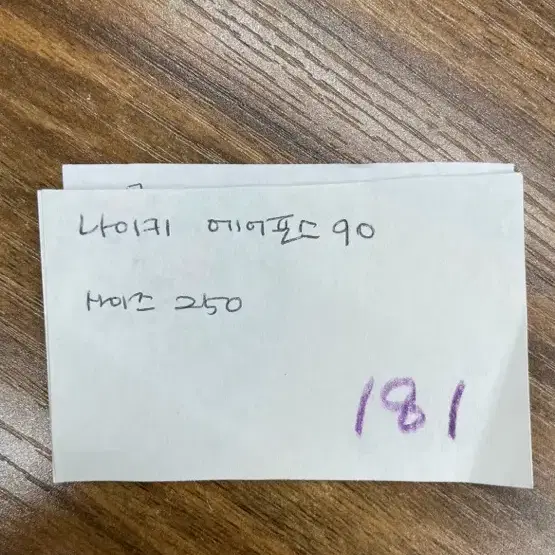 나이키 에어포스 90
사이즈 250
181